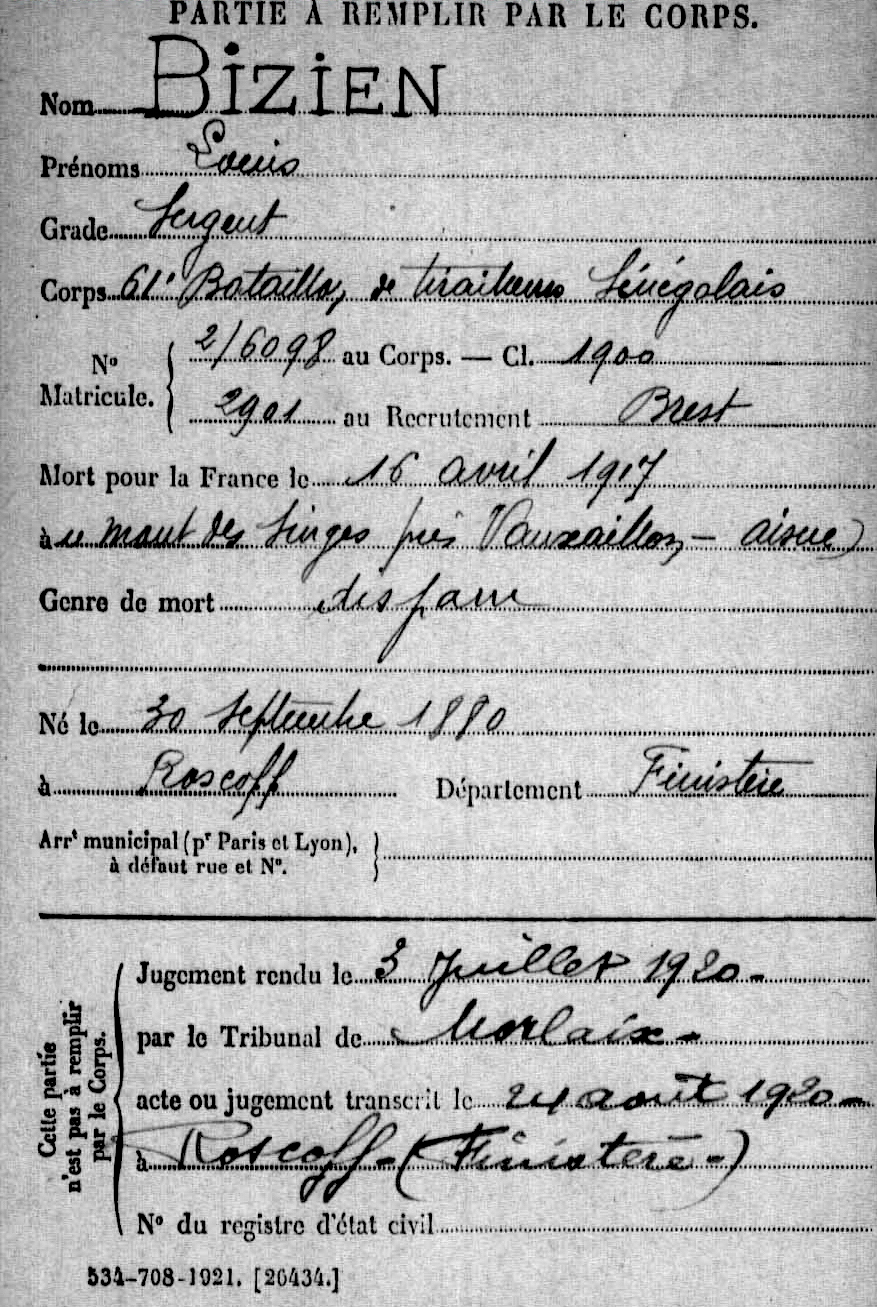 PARTIE À REMPLIR PAR LE CORPS.
Nom BIZIEN
Prénoms Louis
Grade Sergent
Corps 61e Bataillon de tirailleurs Sénégalais
No Matricule. { 2/6098 au Corps. — Cl. 1900
2901 au Recrutement Brest
Mort pour la France le 16 avril 1917
à au mont des Singes près Vauxaillon – aisne)
Genre de mort disparu
Né le 30 Septembre 1880
à Roscoff Département Finistère
Arrt municipal (pr Paris et Lyon), }
à défaut rue et No.
Cette partie n'est pas à remplir par le Corps.
Jugement rendu le 3 Juillet 1920 -
par le Tribunal de Morlaix -
acte ou jugement transcrit le 24 août 1920 -
à Roscoff - (Finistère -)
No du registre d'état civil
534-708-1921. [26434.]